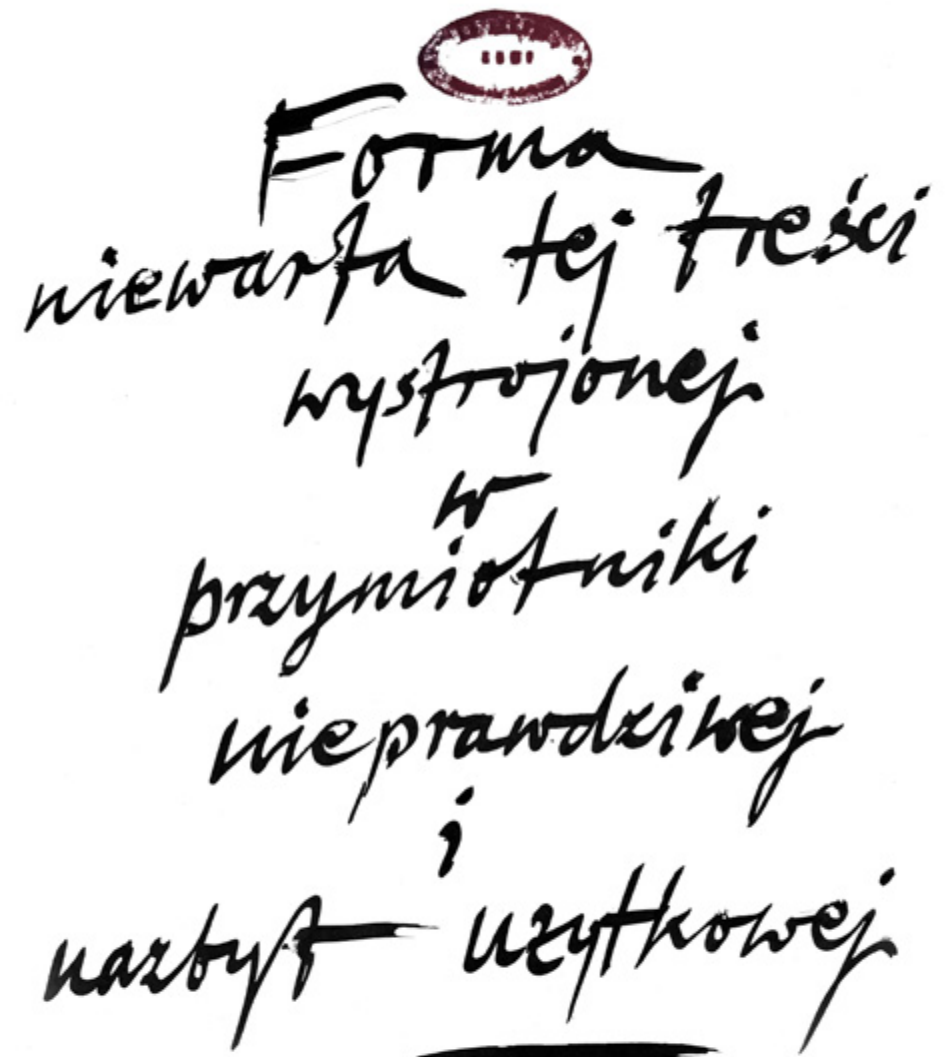 Forma
niewarta tej treści
wystrojonej
w
przymiotniki
nieprawdziwej
i
nazbyt użytkowej